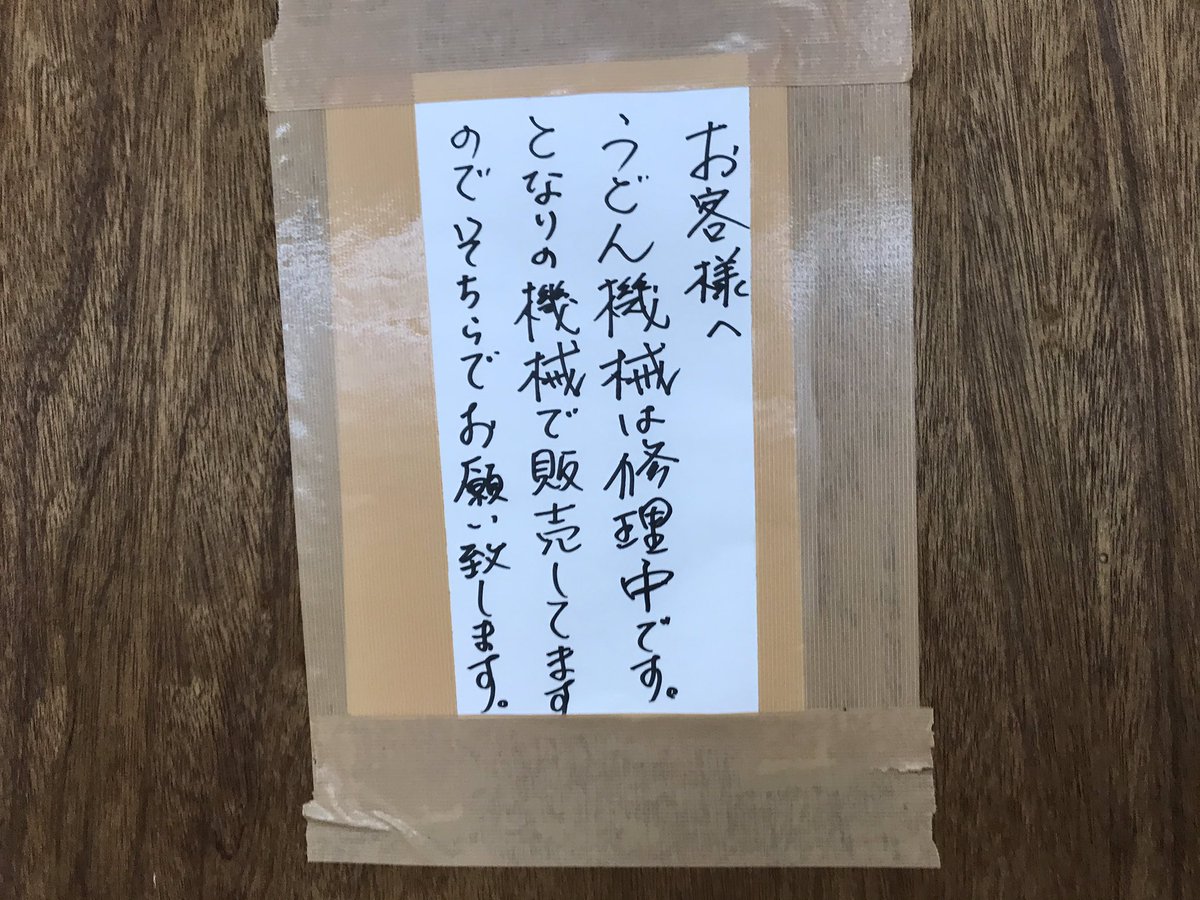 お客様へ
うどん機械は修理中です。
となりの機械で販売してます
のでそちらでお願い致します。